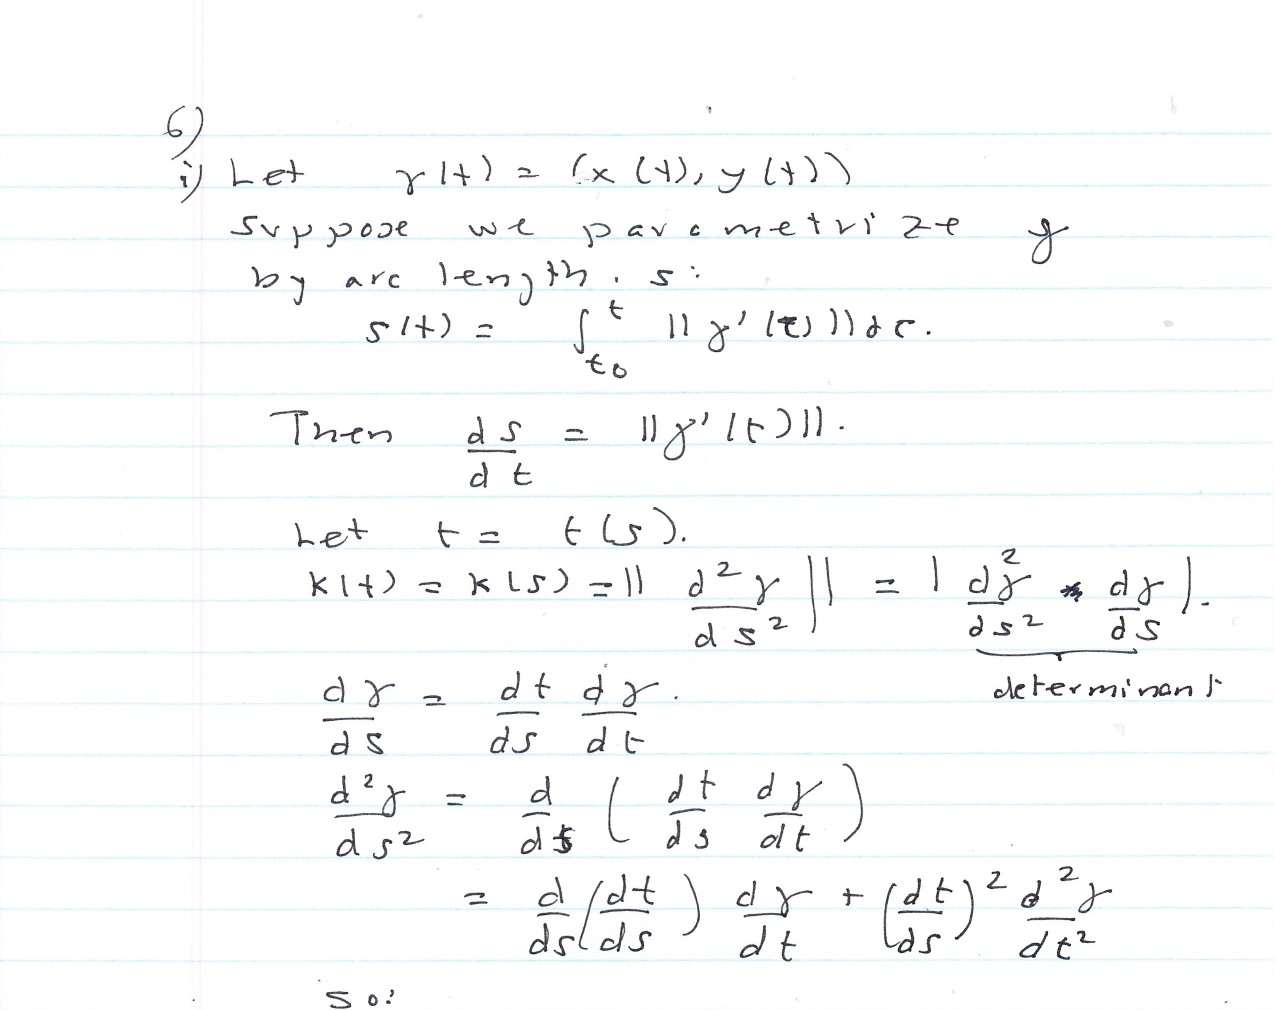 6)
i) Let γ(t) = (x(t), y(t))
suppose we parametrize γ
by arc length, s:
s(t) = ∫_{t_0}^{t} ||γ'(τ)||dτ.
Then ds/dt = ||γ'(t)||.
Let t = t(s).
k(t) = k(s) = || d²γ/ds² || = | d²γ/ds² dγ/ds |.
determinant
dγ/ds = dt/ds dγ/dt.
d²γ/ds² = d/ds ( dt/ds dγ/dt )
= d/ds ( dt/ds ) dγ/dt + ( dt/ds )² d²γ/dt²
so: